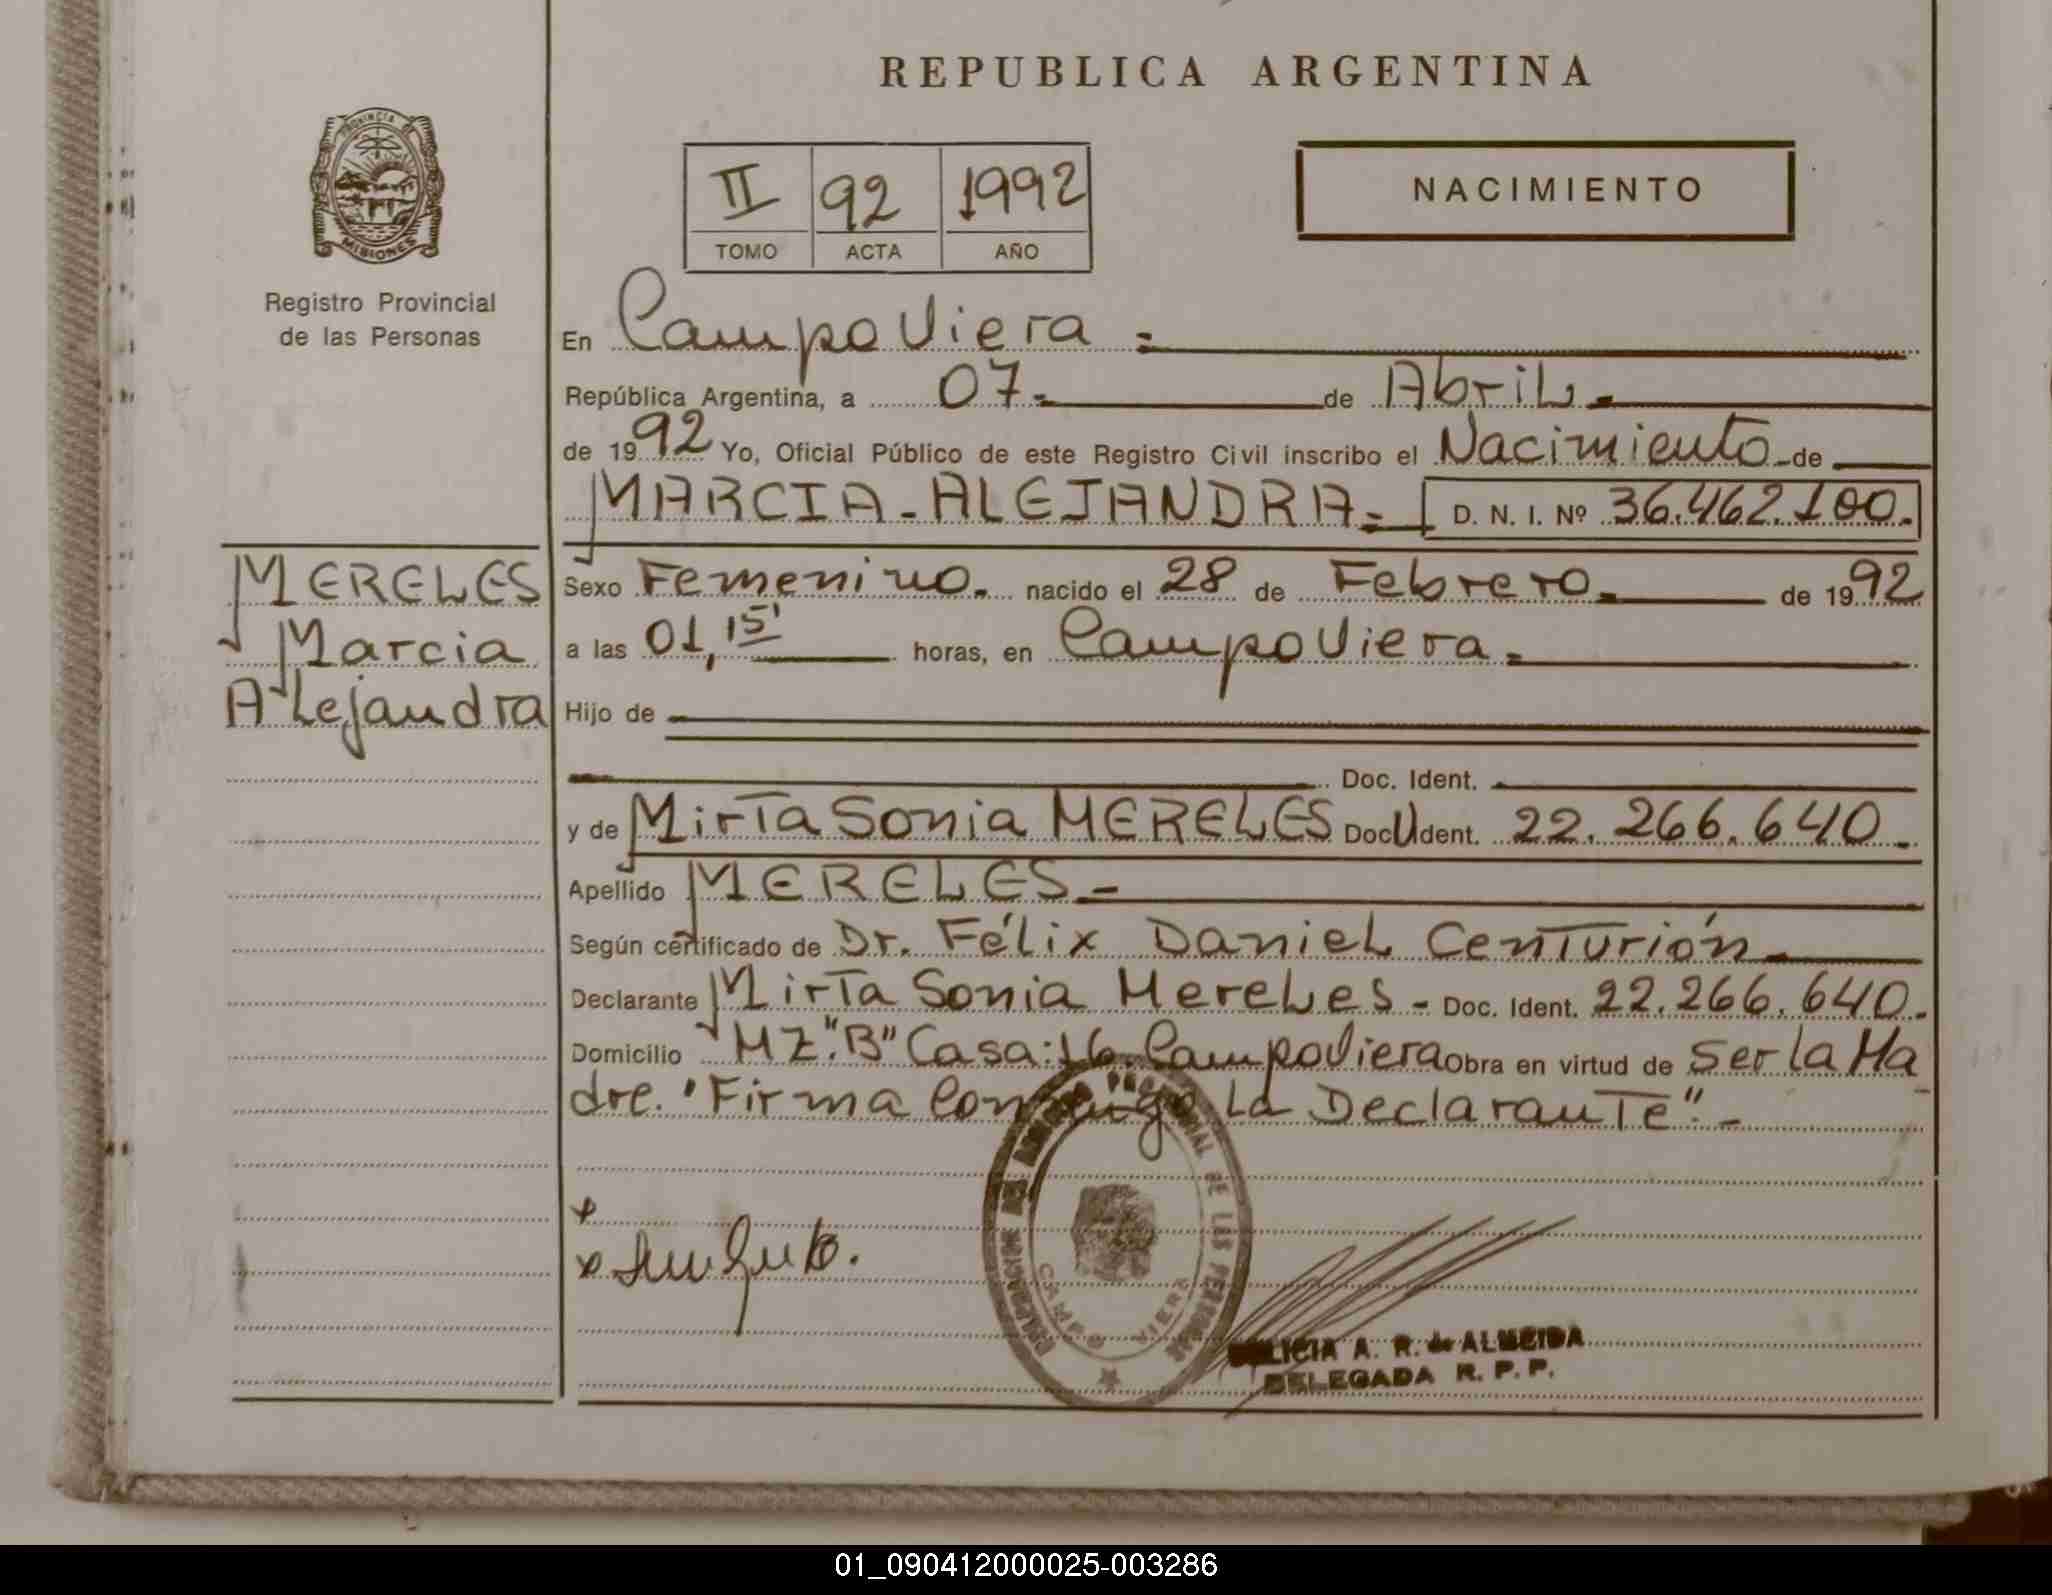 REPUBLICA ARGENTINA
PROVINCIA DE
MISIONES
Registro Provincial
de las Personas
II 92 1992
TOMO ACTA AÑO
NACIMIENTO
En Campo Viera =
República Argentina, a 07 - de Abril -
de 1992 Yo, Oficial Público de este Registro Civil inscribo el Nacimiento - de
MARCIA - ALEJANDRA = D. N. I. Nº 36.462.100.
MERELES
Marcia
Alejandra
Sexo Femenino. nacido el 28 de Febrero - de 1992
a las 01,15' horas, en Campo Viera -
Hijo de
Doc. Ident.
y de Mirta Sonia MERELES Doc. U Ident. 22.266.640.
Apellido MERELES -
Según certificado de Dr. Félix Daniel Centurión -
Declarante Mirta Sonia Mereles - Doc. Ident. 22.266.640.
Domicilio MZ."B" Casa:16. Campo Viera Obra en virtud de Ser la Ma
dre. "Firma Conmigo La Declarante". -
DE LAS PERSONAS
CAMPO VIERA
LICIA A. R. de ALMEIDA
DELEGADA R. P. P.
01_090412000025-003286